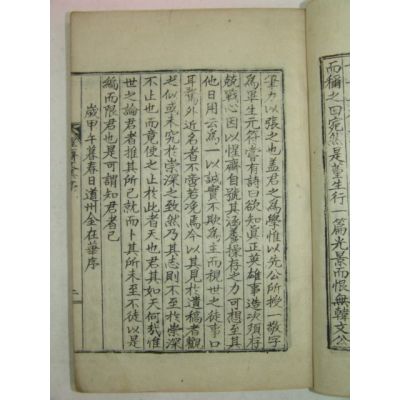 而稱之曰宛然是董生行一篇光景而恨無韓文公
筆力以張之也盖君之爲學惟以先公所授一敬字
爲畢生元符嘗有詩曰欲知眞正英雄事造次須存
兢戰心因以惺齋自號其涵養操存之力可想至其
他日用云爲一以誠實不欺爲主而視世之徒事口
耳騖外近名者不啻若浼焉今以其見於遺稿者觀
之似或未究於崇深之致然乃其志則不至於崇深
不止也而竟使之止於此者天也君其如天何哉惟
世之論君者推其所已就而卜其所未至不徒以是
編而限君也是可謂知君者已
歲甲午暮春日道州金在華序
二